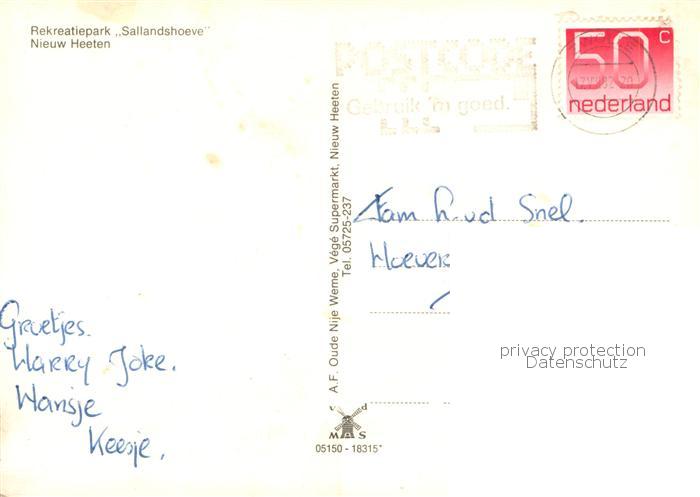 Rekreatiepark „Sallandshoeve"
Nieuw Heeten
POSTCODE
Gebruik 'm goed.
50 c
nederland
A.F. Oude Nije Weme, Végé Supermarkt, Nieuw Heeten
Tel. 05725-237
Fam h.vd Snel.
Hoever
privacy protection
Datenschutz
Groetjes.
Harry Joke.
Hansje
Keesje.
v d
MAS
05150 - 18315*